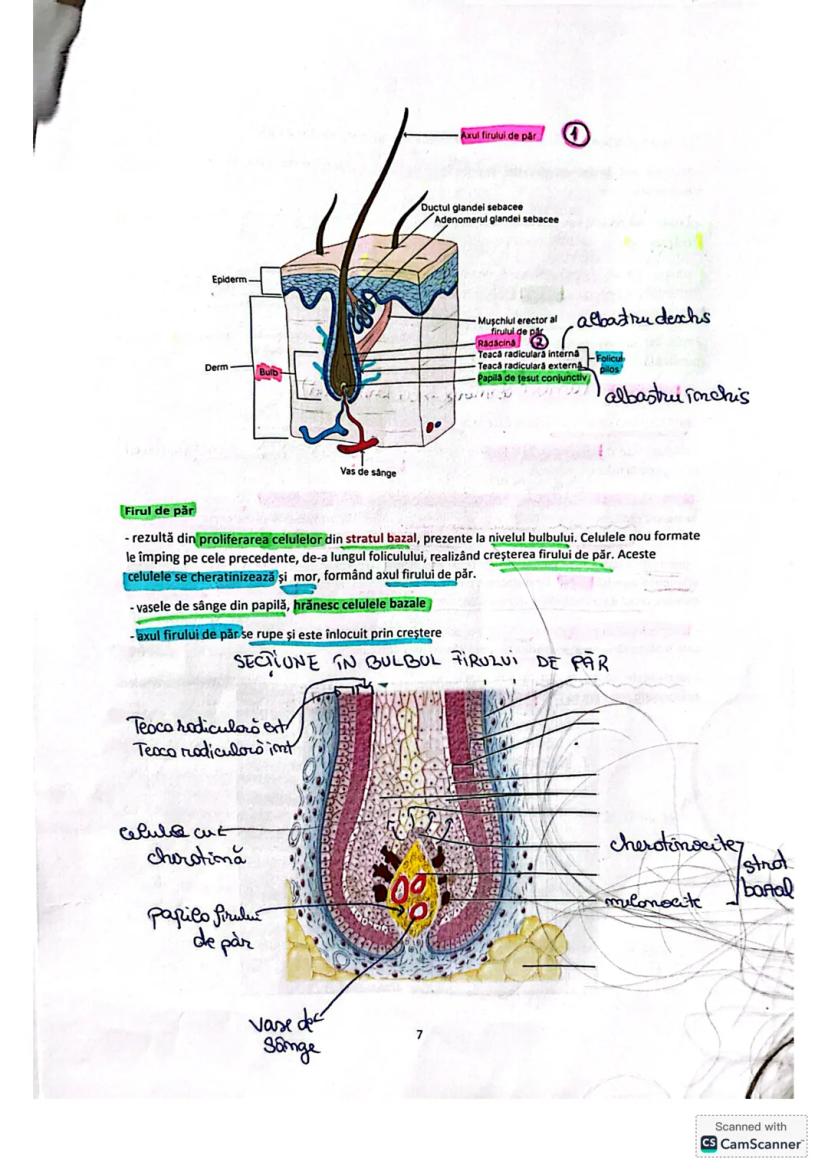 Axul firului de păr 1
Ductul glandei sebacee
Adenomerul glandei sebacee
Epiderm
Mușchiul erector al
firului de păr
albastru deschis
Rădăcină 2
Teacă radiculară internă
Folicul
pilos
Teacă radiculară externă
Derm
Bulb
Papilă de țesut conjunctiv
albastru închis
Vas de sânge
Firul de păr
- rezultă din proliferarea celulelor din stratul bazal, prezente la nivelul bulbului. Celulele nou formate
le împing pe cele precedente, de-a lungul foliculului, realizând creșterea firului de păr. Aceste
celulele se cheratinizează și mor, formând axul firului de păr.
- vasele de sânge din papilă, hrănesc celulele bazale
- axul firului de păr se rupe și este înlocuit prin creștere
SECȚIUNE ÎN BULBUL FIRULUI DE PĂR
Teaca radiculară ext
Teaca radiculară int
celule cu
cheratină
cheratinocite
strat
bazal
melanocite
papila firului
de păr
vase de
sânge
7
Scanned with
CS CamScanner